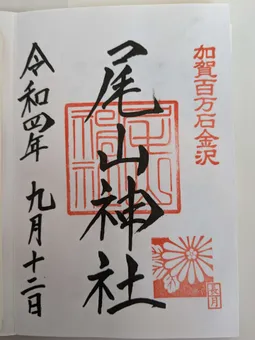 加賀百万石金沢
尾山神社
令和四年 九月十二日